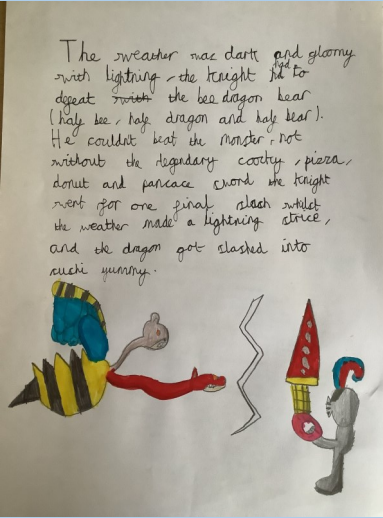 The weather was dark and gloomy
with lightning, the knight had to
defeat with the bee dragon bear
(half bee, half dragon and half bear).
He couldn't beat the monster, not
without the legendary cooky, pizza,
donut and pancace sword the knight
went for one final slash whilst
the weather made a lightning strice,
and the dragon got slashed into
sushi yummy.